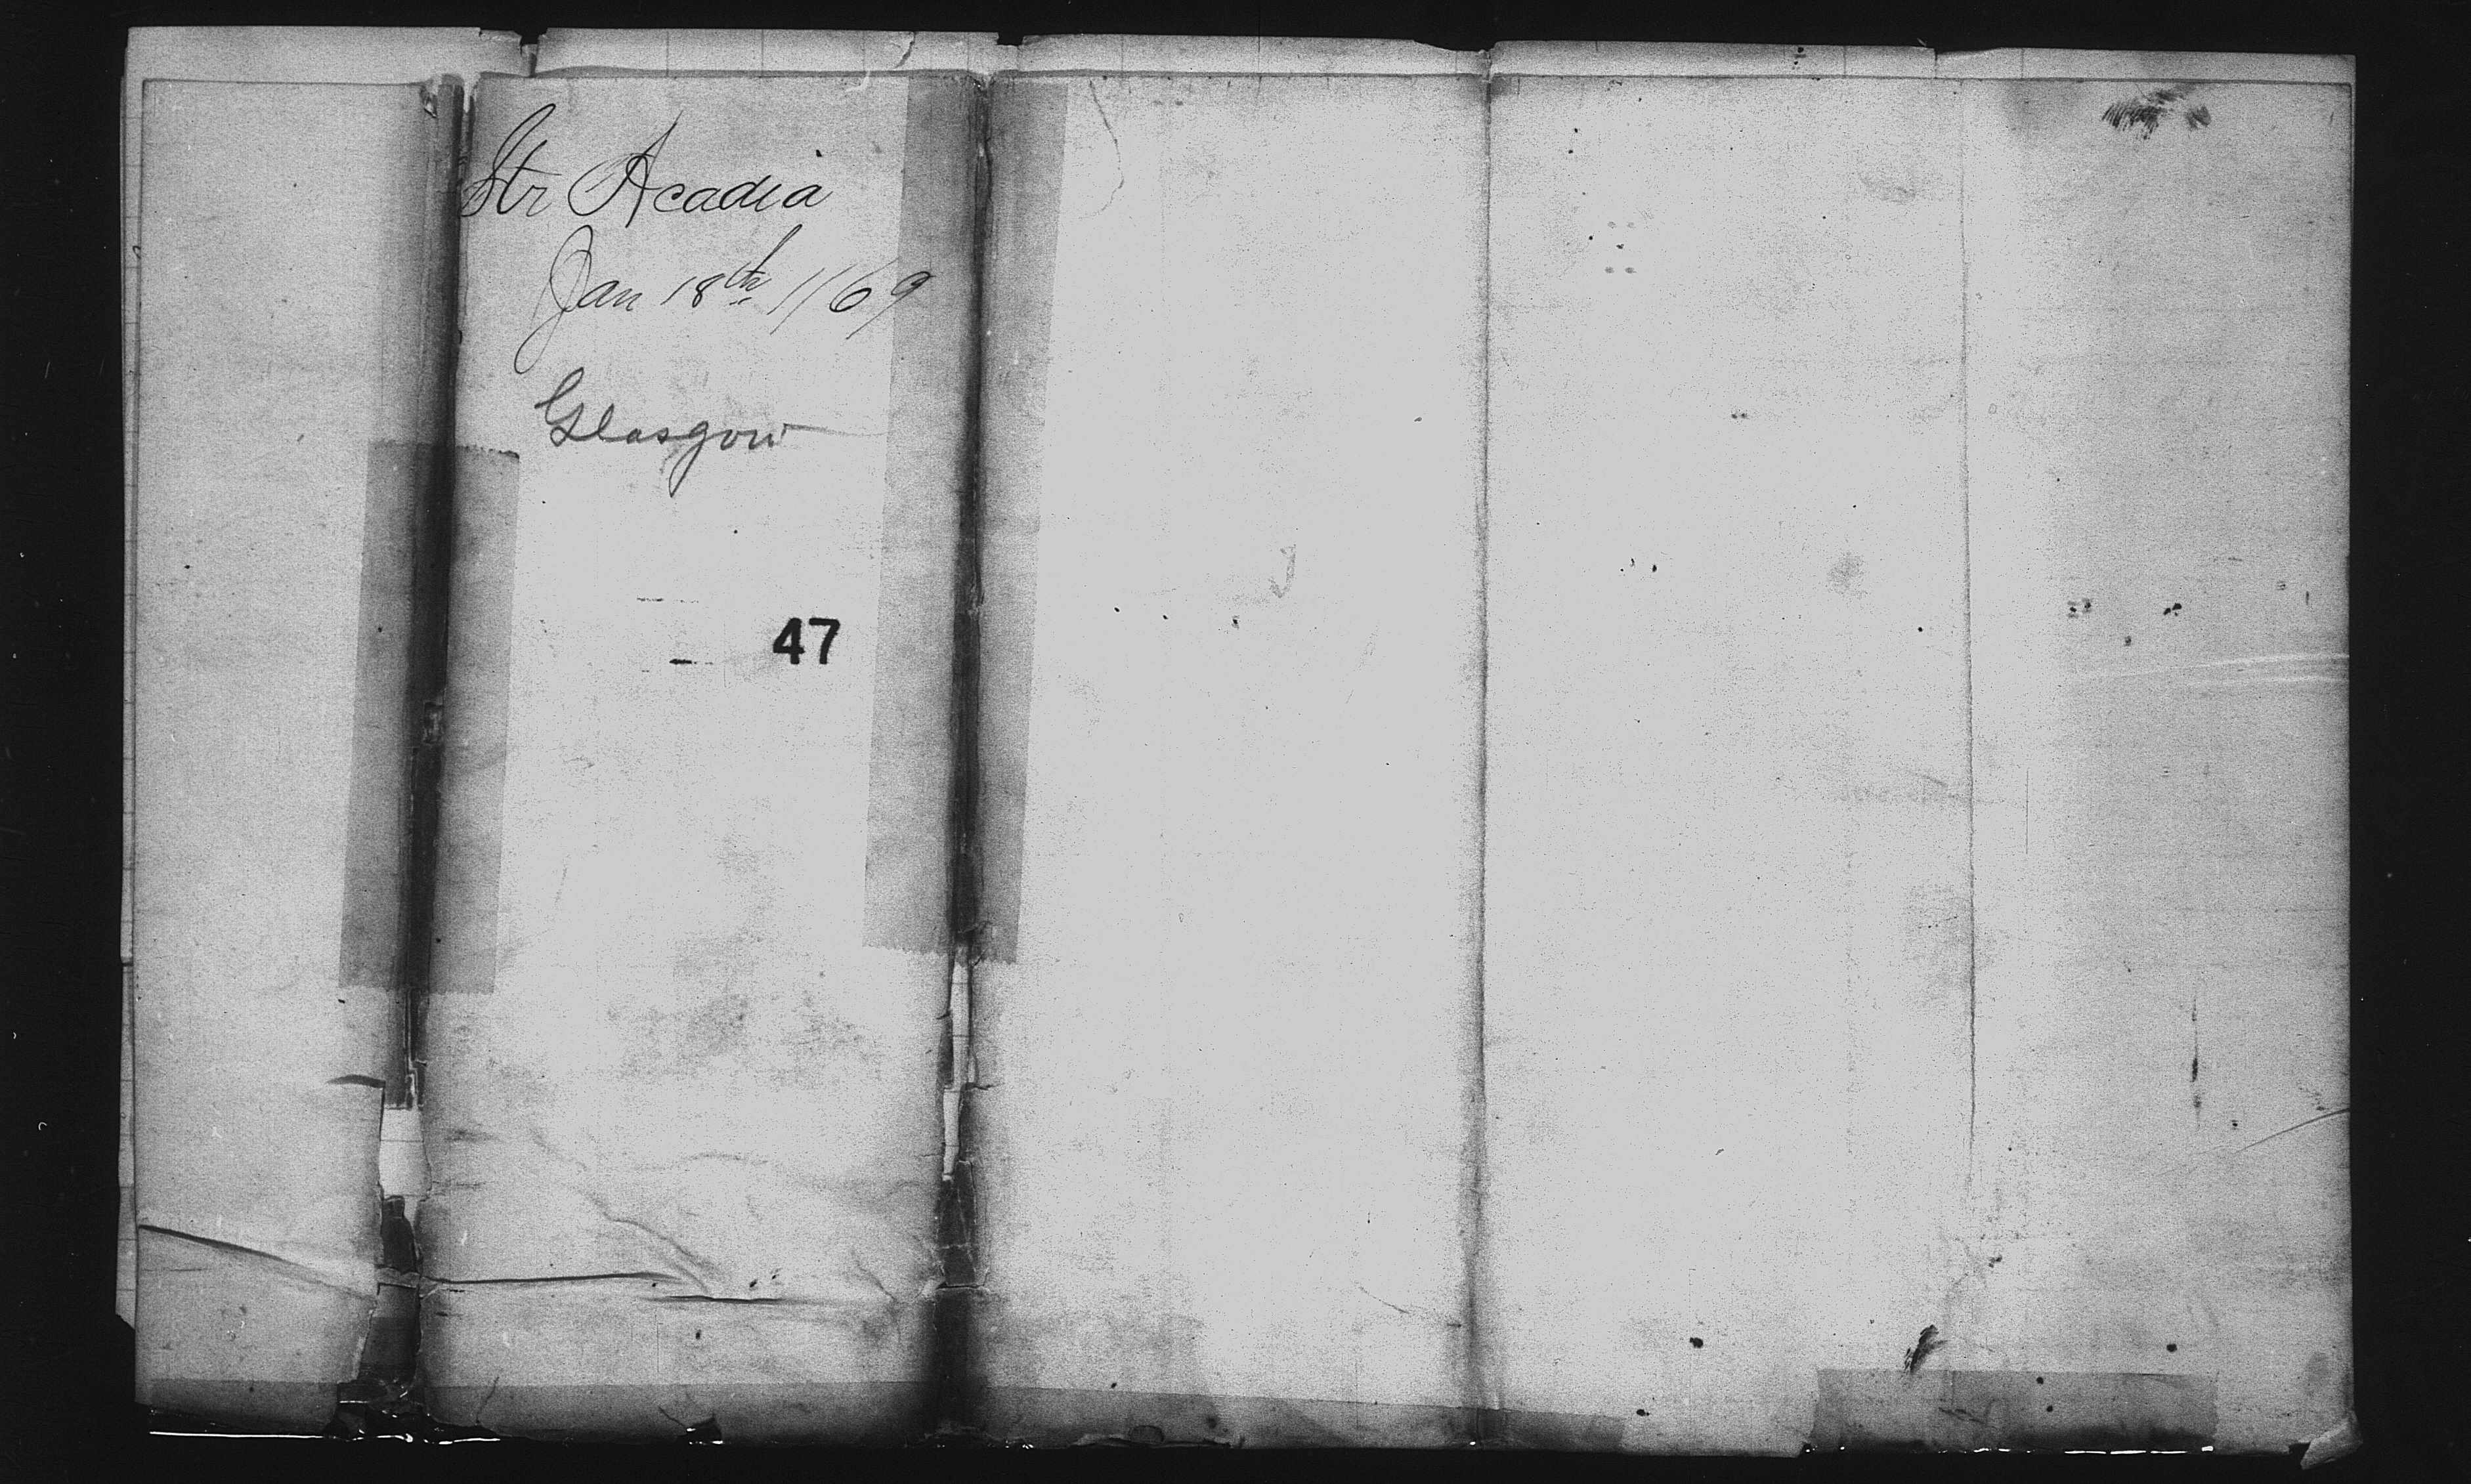 Str Acadia
Jan 18th //69
Glasgow
47